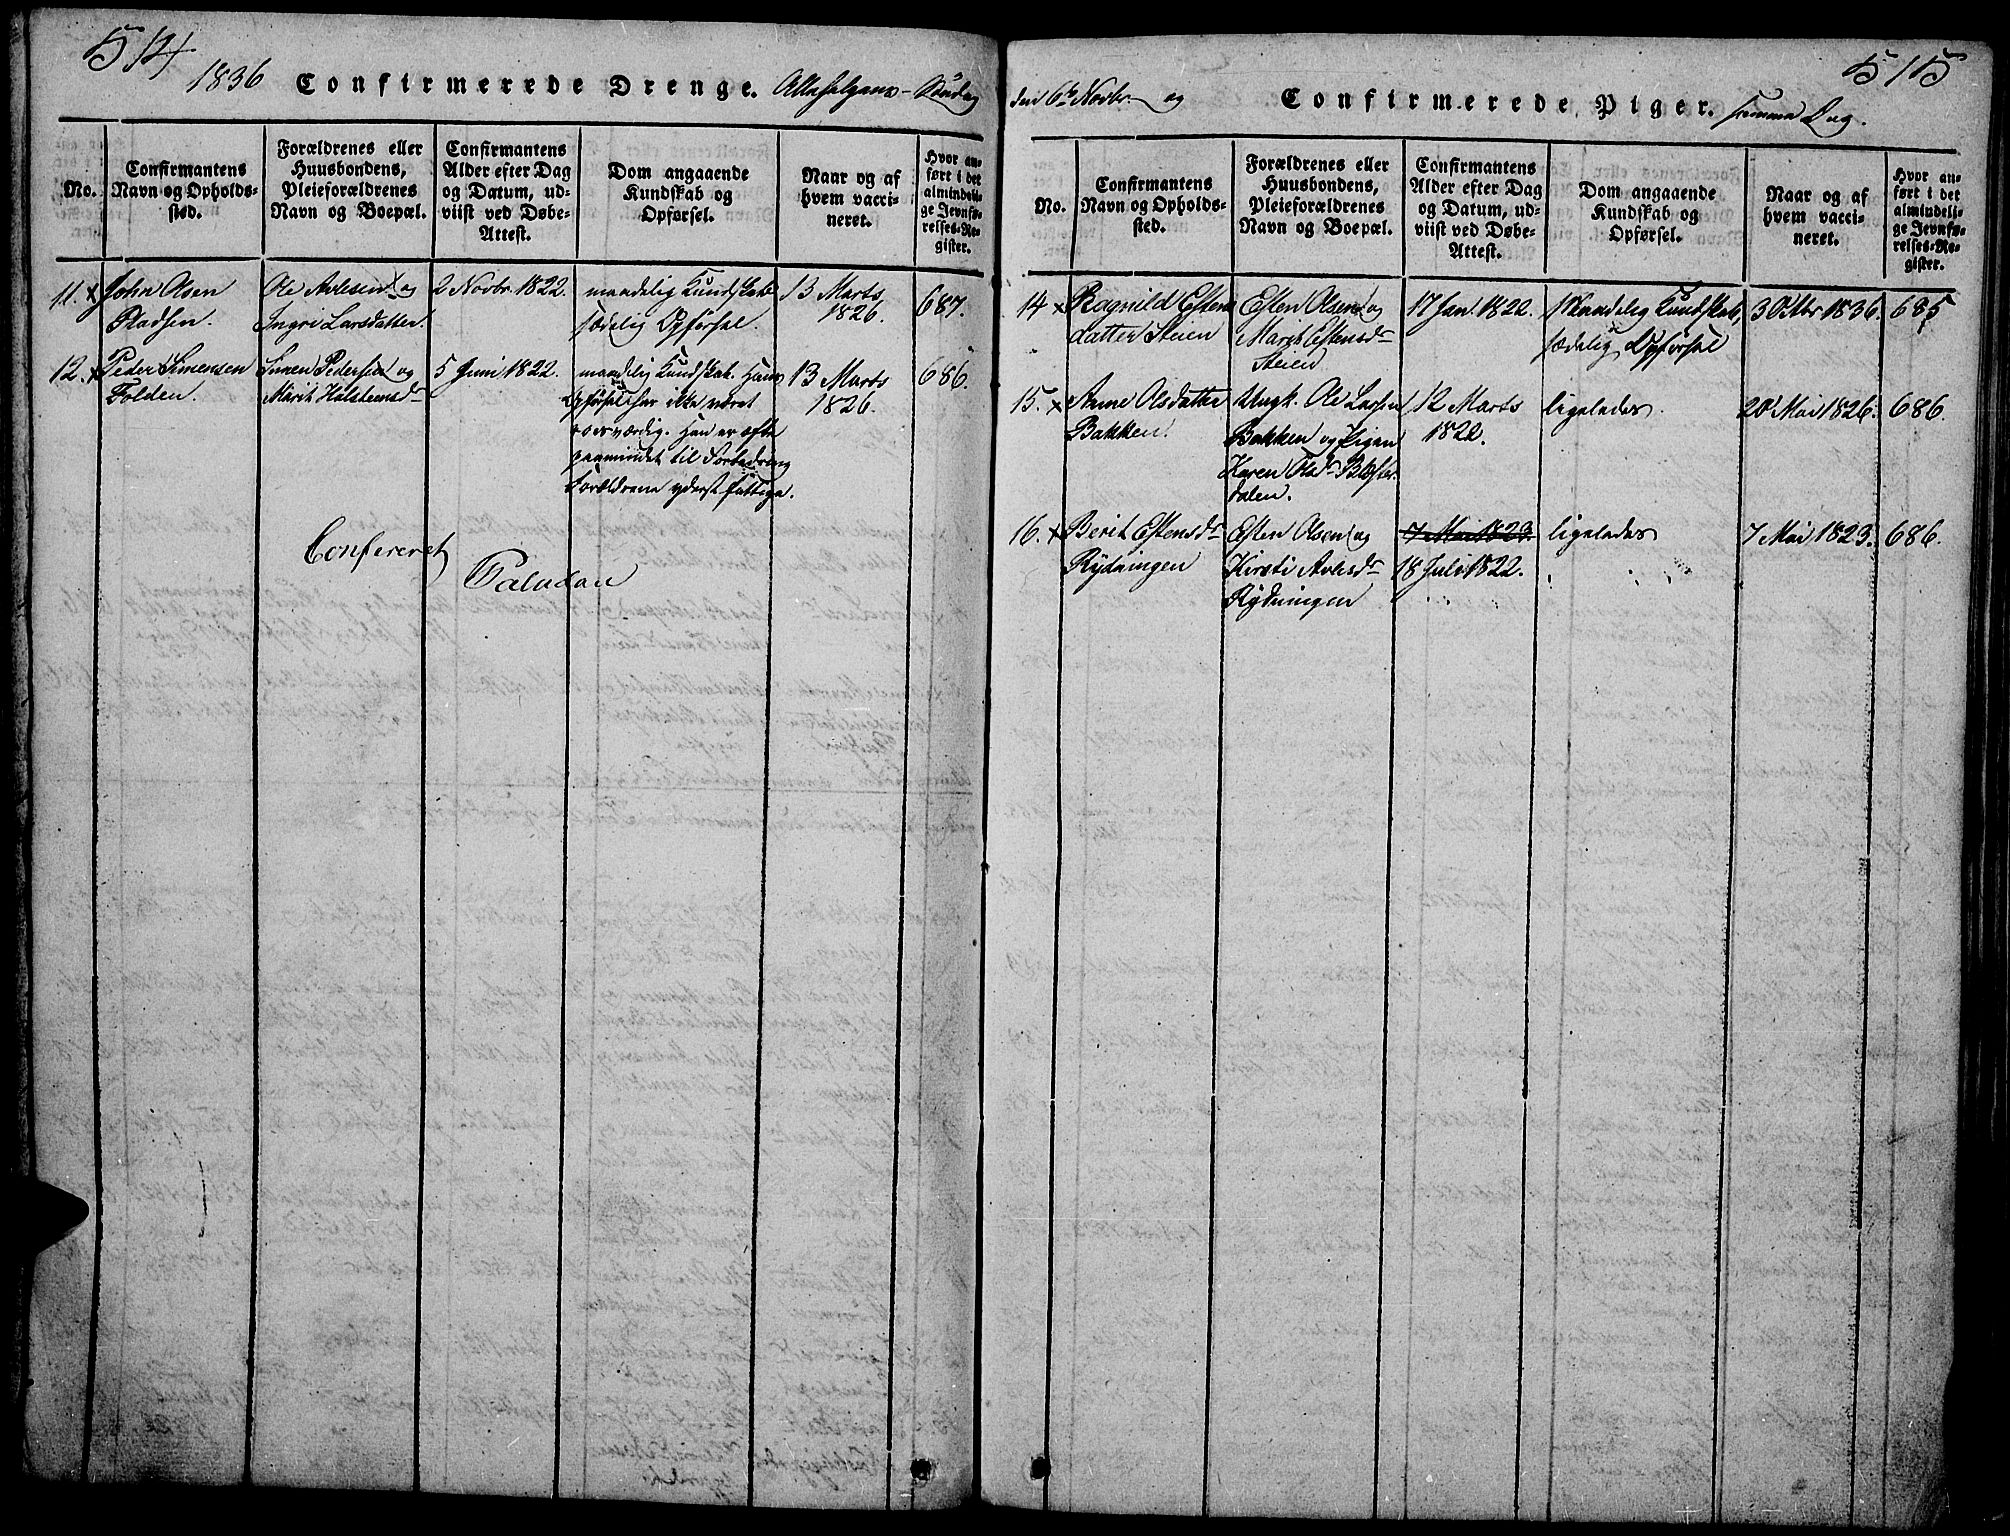 514
1836 Confirmerede Drenge. Allehelgens-Søndag
No.
Confirmantens
Navn og Opholds-
sted.
Forældrenes eller
Huusbondens,
Pleieforældrenes
Navn og Boepæl.
Confirmantens
Alder efter Dag
og Datum, ud-
viist ved Døbe-
Attest.
Dom angaaende
Kundskab og
Opførsel.
Naar og af
hvem vacci-
neret.
Hvor an-
ført i det
almindeli-
ge Jevnfø-
relses-Re-
gister.
11. x John Olsen
Pladsen.
Ole Avlesen og
Ingri Larsdatter.
2 Novbr. 1822.
maadelig Kundskab
sædelig Opførsel.
13 Marts
1826.
687.
12. x Peder Simensen
Tolden.
Simen Pedersen og
Marit Halstensd
5 Juni 1822.
maadelig Kundskab. Hans
Opførsel har ikke været
roesværdig. Han er ofte
paamindet til Forbedring
Forældrene yderst fattige.
13 Marts
1826.
686.
Confereret
Paludan
515
den 6te Novbr. og Confirmerede Piger. samme Dag.
No.
Confirmantens
Navn og Opholds-
sted.
Forældrenes eller
Huusbondens,
Pleieforældrenes
Navn og Boepæl.
Confirmantens
Alder efter Dag
og Datum, ud-
viist ved Døbe-
Attest.
Dom angaaende
Kundskab og
Opførsel.
Naar og af
hvem vacci-
neret.
Hvor an-
ført i det
almindeli-
ge Jevnfø-
relses-Re-
gister.
14 x Ragnild Estens
datter Steien
Esten Olsen og
Marit Estensdr
Steien
17 Jan 1822.
Maadelig Kundskab,
sædelig Opførsel
30 1836.
685
15. x Anne Olsdatter
Bakken.
Ungk. Ole Larsen
Bakken og Pigen
Karen Olsdr
dalen.
12 Marts
1822.
ligeledes
20 Mai 1826.
686.
16. x Berit Estensdr
Rydningen
Esten Olsen og
Kirsti Avlesdr
Rydningen
7 Mai 1823.
18 Juli 1822.
ligeledes
7 Mai 1823.
686.